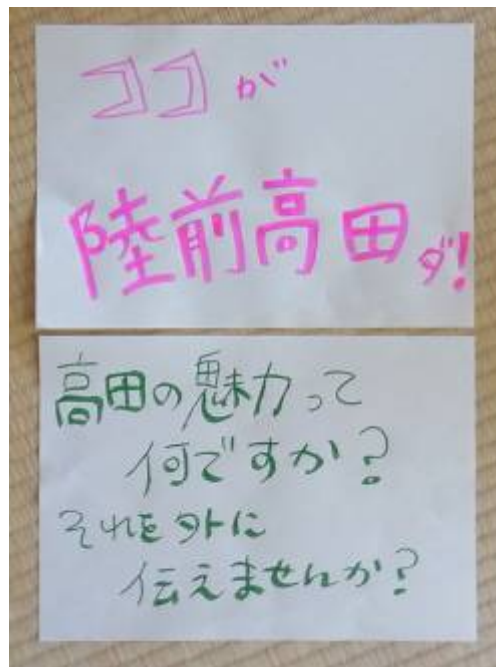 ココが
陸前高田ダ!
高田の魅力って
何ですか?
それを外に
伝えませんか?